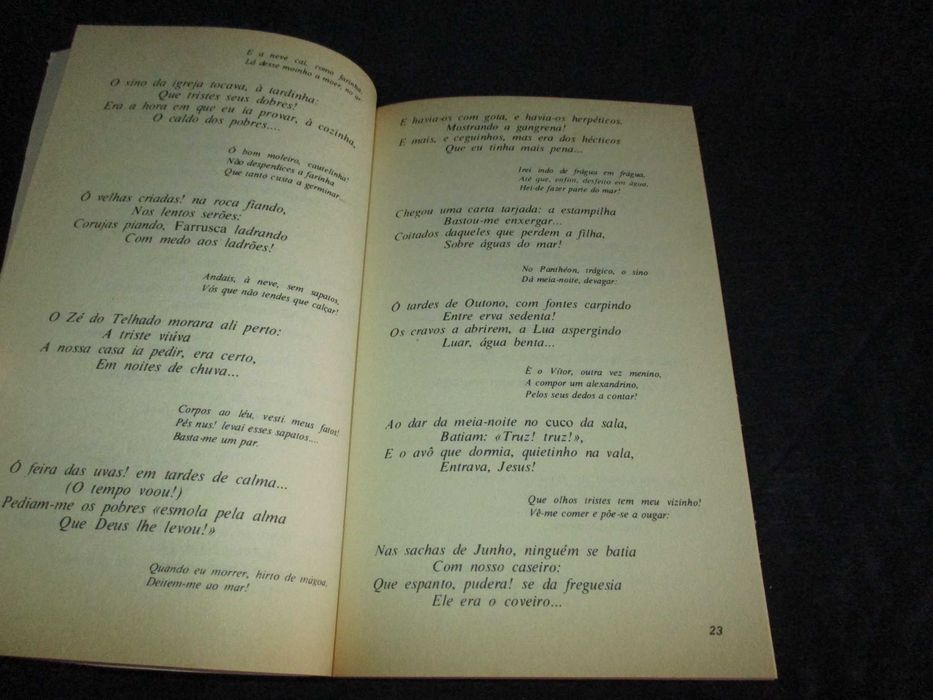 E a neve cai, como farinha,
Lá desse moinho a moer, no
O sino da igreja tocava, à tardinha:
Que tristes seus dobres!
Era a hora em que eu ia provar, à cozinha,
O caldo dos pobres....
Ó bom moleiro, cautelinha!
Não desperdices a farinha
Que tanto custa a germinar....
Ó velhas criadas! na roca fiando,
Nos lentos serões:
Corujas piando, Farrusca ladrando
Com medo aos ladrões!
Andais, à neve, sem sapatos,
Vós que não tendes que calçar!
O Zé do Telhado morara ali perto:
A triste viúva
A nossa casa ia pedir, era certo,
Em noites de chuva...
Corpos ao léu, vesti meus fatos!
Pés nus! levai esses sapatos....
Basta-me um par.
Ó feira das uvas! em tardes de calma...
(O tempo voou!)
Pediam-me os pobres «esmola pela alma
Que Deus lhe levou!»
Quando eu morrer, hirto de mágoa,
Deitem-me ao mar!
E havia-os com gota, e havia-os herpéticos,
Mostrando a gangrena!
E mais, e ceguinhos, mas era dos hécticos
Que eu tinha mais pena...
Irei indo de frágua em frágua,
Até que, enfim, desfeito em água,
Hei-de fazer parte do mar!
Chegou uma carta tarjada: a estampilha
Bastou-me enxergar...
Coitados daqueles que perdem a filha,
Sobre águas do mar!
No Panthéon, trágico, o sino
Dá meia-noite, devagar:
Ó tardes de Outono, com fontes carpindo
Entre erva sedenta!
Os cravos a abrirem, a Lua aspergindo
Luar, água benta...
É o Vítor, outra vez menino,
A compor um alexandrino,
Pelos seus dedos a contar!
Ao dar da meia-noite no cuco da sala,
Batiam: «Truz! truz!»,
E o avô que dormia, quietinho na vala,
Entrava, Jesus!
Que olhos tristes tem meu vizinho!
Vê-me comer e põe-se a ougar:
Nas sachas de Junho, ninguém se batia
Com nosso caseiro:
Que espanto, pudera! se da freguesia
Ele era o coveiro...
23